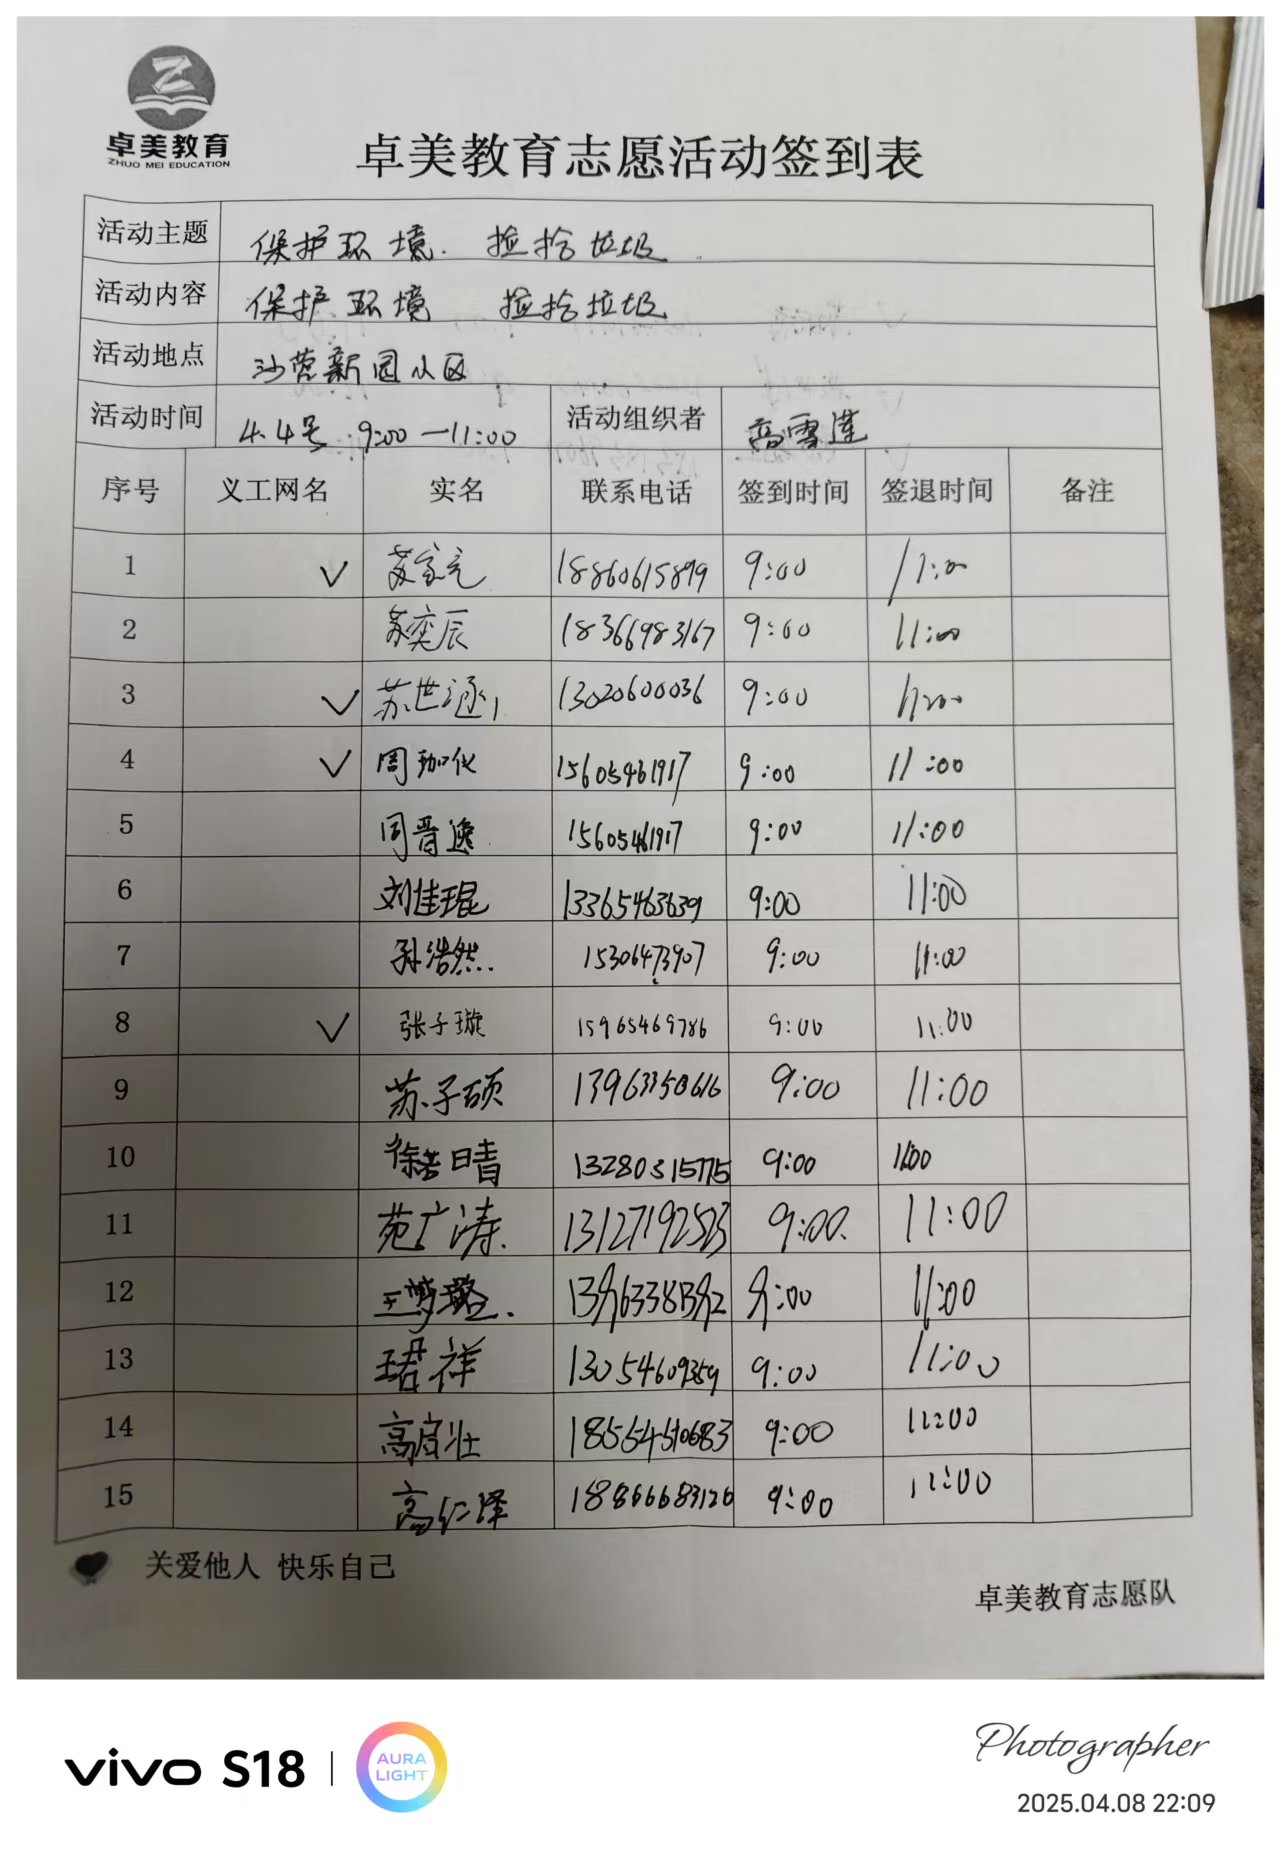 卓美教育
ZHUO MEI EDUCATION
卓美教育志愿活动签到表
活动主题 保护环境. 捡拾垃圾.
活动内容 保护环境 捡拾垃圾
活动地点 沙营新园小区
活动时间 4.4号 9:00—11:00 活动组织者 高雪莲
序号 义工网名 实名 联系电话 签到时间 签退时间 备注
1 ✓ 苏家元 18860615899 9:00 11:00
2 苏奕辰 18366983167 9:00 11:00
3 ✓ 苏世涵 13020600036 9:00 11:00
4 ✓ 周珈伙 15605461917 9:00 11:00
5 周晋逸 15605461917 9:00 11:00
6 刘佳琨 13365463639 9:00 11:00
7 孙浩然. 15306473907 9:00 11:00
8 ✓ 张子璇 15965469786 9:00 11:00
9 苏子硕 13963350616 9:00 11:00
10 徐若晴 13280315775 9:00 11:00
11 苑广涛. 13127192523 9:00. 11:00
12 王梦璐. 9:00 11:00
13 珺祥 13054609359 9:00 11:00
14 高启壮 18554510683 9:00 11:00
15 高仁泽 18866683126 9:00 11:00
关爱他人 快乐自己
卓美教育志愿队
vivo S18 | AURA LIGHT
Photographer
2025.04.08 22:09